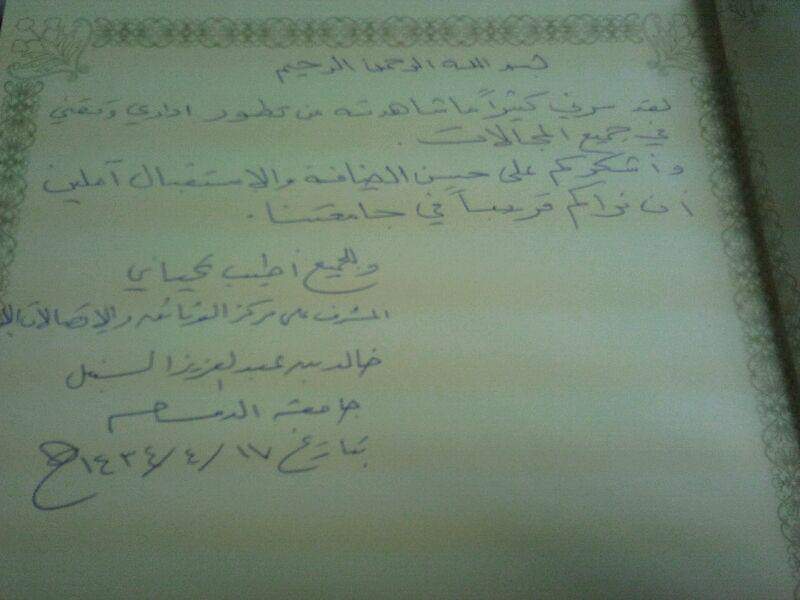 بسم الله الرحمن الرحيم
لقد سرني كثيراً ما شاهدته من تطور اداري وتقني
في جميع المجالات .
وأشكركم على حسن الضيافة والاستقبال آملين
أن نراكم قريباً في جامعتنا .
وللجميع أطيب تحياتي
المشرف على مركز الوثائق والاتصالات
خالد بن عبدالعزيز
جامعة الدمام
بتاريخ ١٧/٤/١٤٣٤هـ